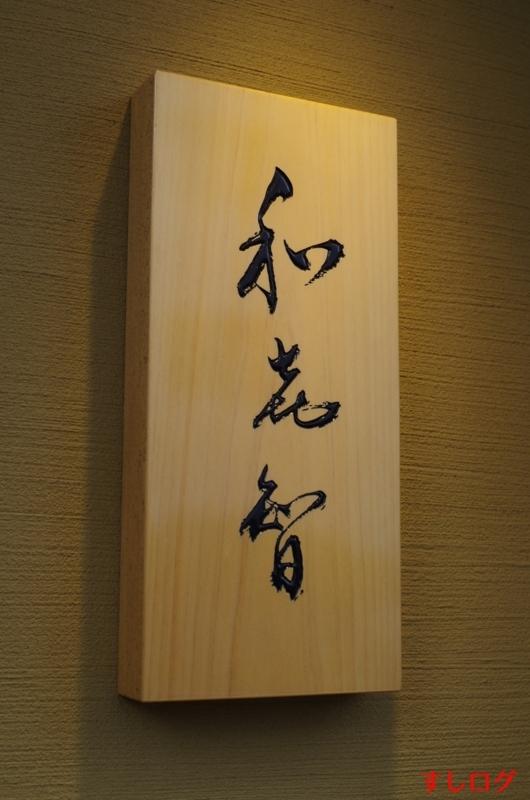 和㐂智
すしログ